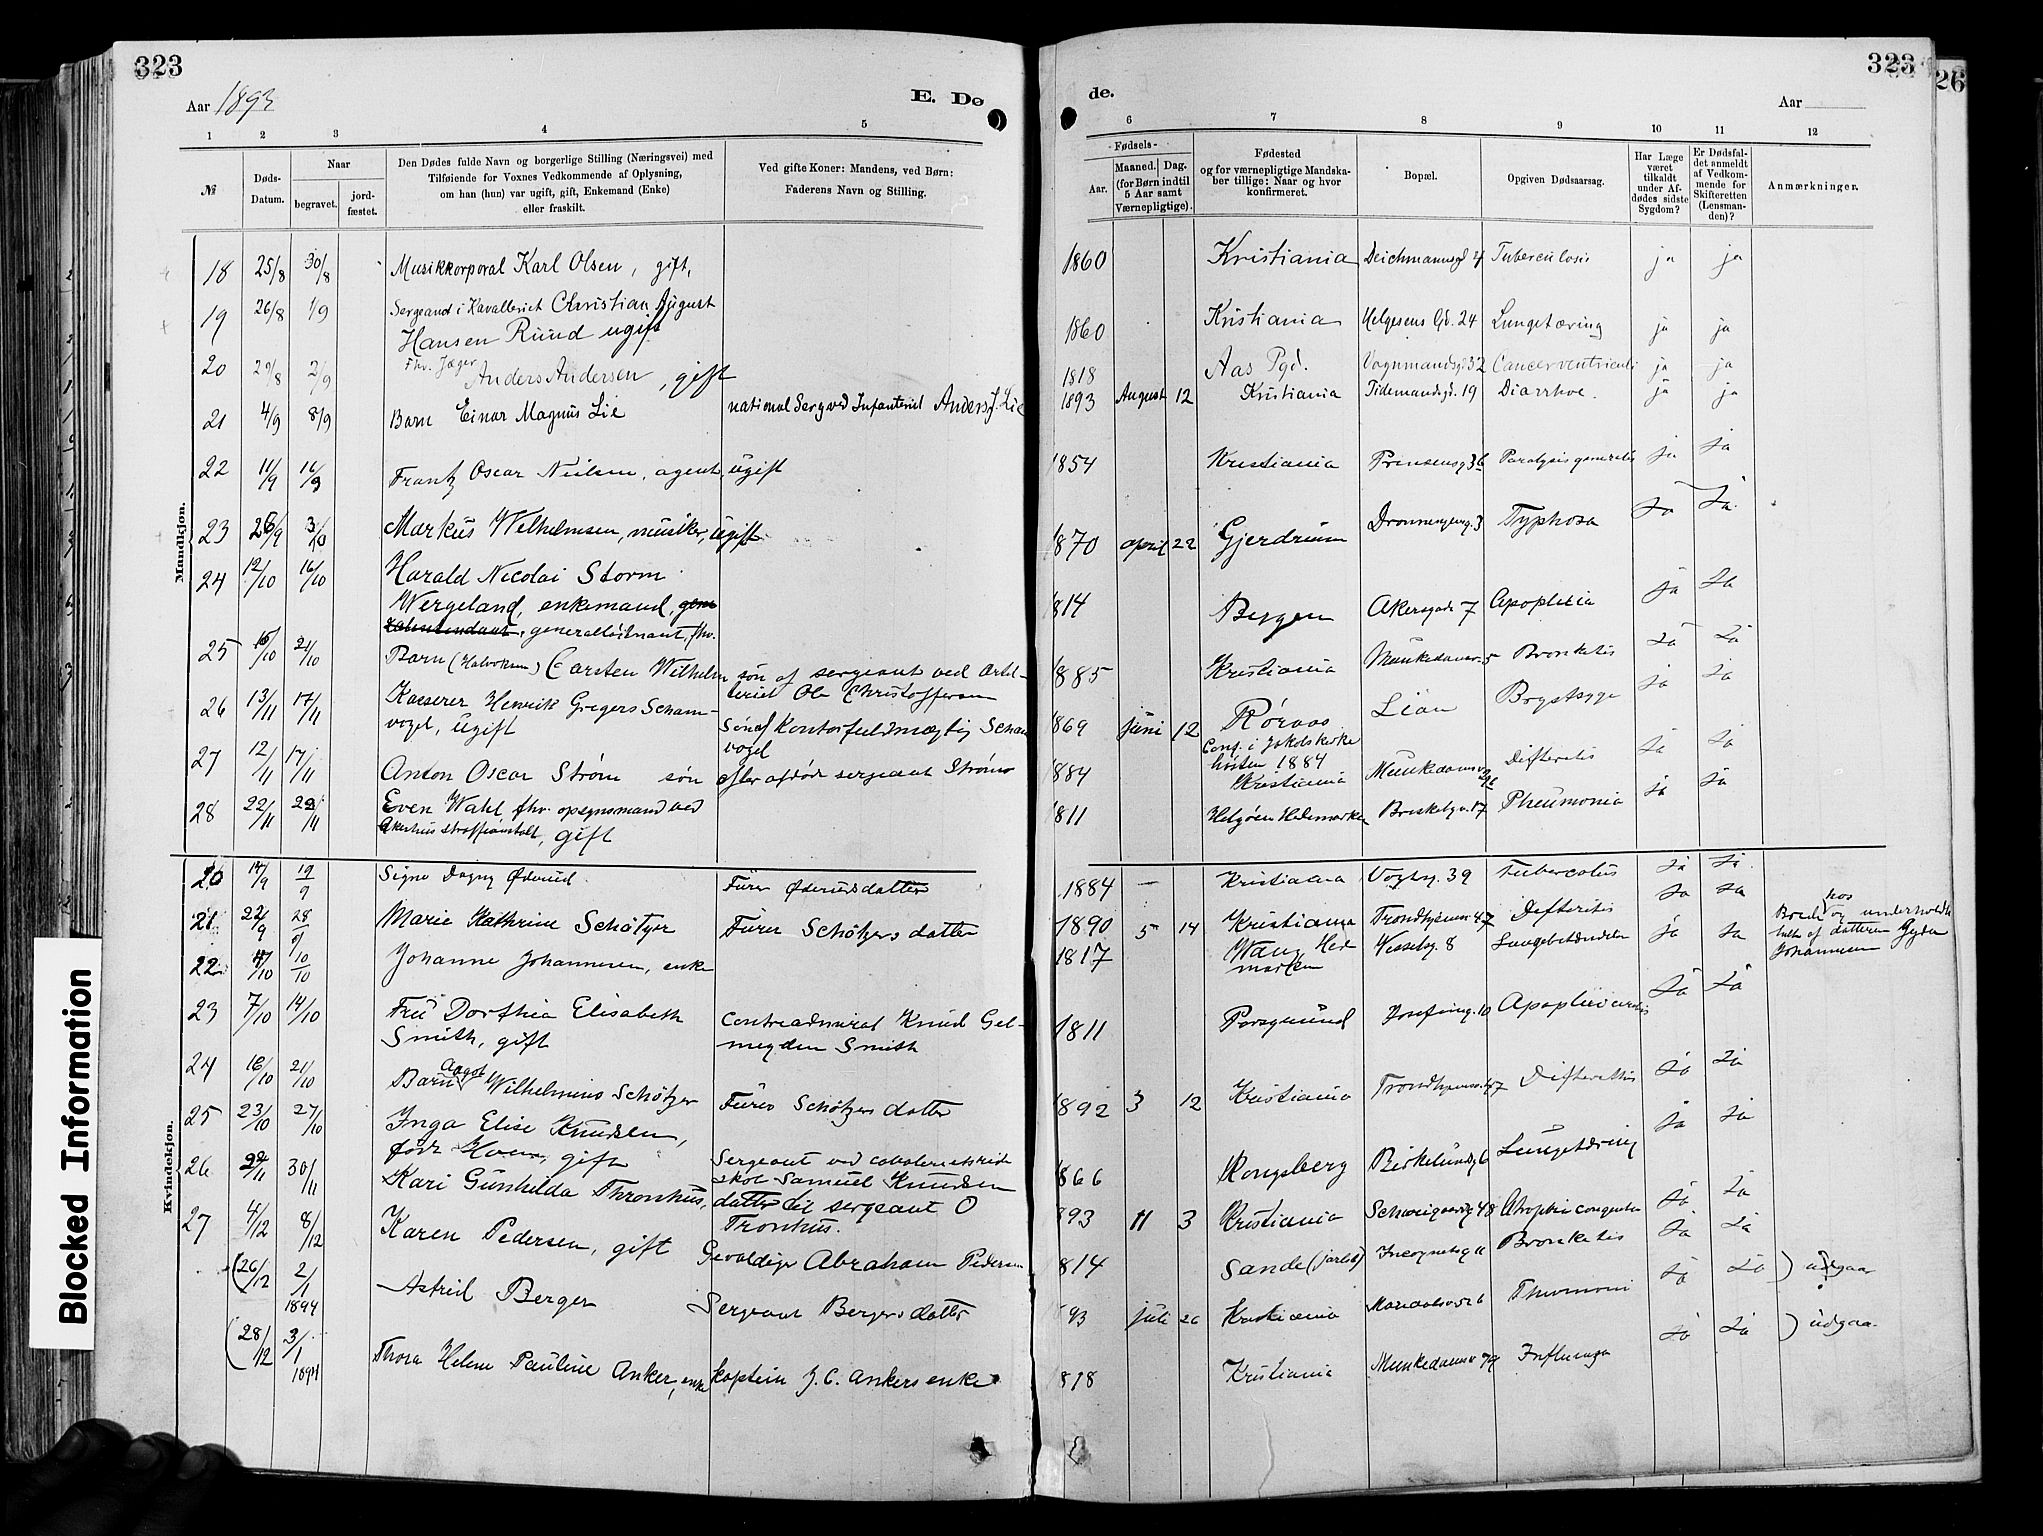 323
323
26
Aar 1893
E. Dø
de.
Aar
1 2 3 4 5
6 7 8 9 10 11 12
№
Døds-Datum.
Naar
begravet.
jord-fæstet.
Den Dødes fulde Navn og borgerlige Stilling (Næringsvei) med
Tilføiende for Voxnes Vedkommende af Oplysning,
om han (hun) var ugift, gift, Enkemand (Enke)
eller fraskilt.
Ved gifte Koner: Mandens, ved Børn:
Faderens Navn og Stilling.
Fødsels-
Aar.
Maaned. Dag.
(for Børn indtil
5 Aar samt
Værnepligtige).
Fødested
og for værnepligtige Mandska-
ber tillige: Naar og hvor
konfirmeret.
Bopæl.
Opgiven Dødsaarsag.
Har Læge
været
tilkaldt
under Af-
dødes sidste
Sygdom?
Er Dødsfal-
det anmeldt
af Vedkom-
mende for
Skifteretten
(Lensman-
den)?
Anmærkninger.
Mandkjøn.
18 25/8 30/8 Musikkorporal Karl Olsen, gift, 1860 Kristiania Deichmannsgd 4 Tuberculosis ja ja
19 26/8 1/9 Sergeand i Kavalleriet Christian August
Hansen Ruud ugift 1860 Kristiania Helgesens Gd. 24 Lungetæring ja ja
20 29/8 2/9 Fhv. Jæger
Anders Andersen, gift 1818 Aas Pgd. Vognmandsgd 32 Cancer ventriculi ja ja
21 4/9 8/9 Barn Einar Magnus Lie national Serg ved Infanteriet Anders J. Lie 1893 August 12 Kristiania Tidemandsgd. 19 Diarrhoe. ja ja
22 11/9 16/9 Frantz Oscar Nielsen, agent, ugift 1854 Kristiania Prinsensg. 36 Paralysis generalis ja ja
23 26/9 3/10 Markus Wilhelmsen, musiker, ugift 1870 april 22 Gjerdrum Dronningensg. 3 Typhosa ja ja
24 12/10 16/10 Harald Nicolai Storm
Wergeland, enkemand,
generalløitnant, fhv. 1814 Bergen Akersgade 7 Apoplexia ja ja
25 16/10 21/10 Barn (Halvorsen) Carsten Wilhelm søn af sergeant ved Artil-
leriet Ole Christoffersen 1885 Kristiania Munkedamsv. 5 Bronketis ja ja
26 13/11 17/11 Kasserer Henrik Gregers Scham-
vogel, ugift Søn af Kontorfuldmægtig Scham
vogel 1869 juni 12 Røraas
Conf. i Jakobskirke
høsten 1884 Lian Brystsyge ja ja
27 12/11 17/11 Anton Oscar Strøm søn efter afdøde sergeant Strøm 1884 Kristiania Munkedamsv Difteritis ja ja
28 22/11 29/11 Even Wahl fhv. opsynsmand ved
Akerhus straffeanstalt, gift 1811 Helgøen Hedemarken Briskebyv. 17 Pneumonia ja ja
Kvindekjøn.
20 14/9 19/9 Signe Dagny Øderud Furer Øderuds datter 1884 — Kristiania Vogtsg. 39 Tubercolus ja ja
21 22/9 28/9 Marie Kathrine Schøtzer Furer Schøtzers datter 1890 5 14 Kristiania Trondhjemsv 47 Difteritis ja ja
22 4/10 9/10 Johanne Johannesen, enke 1817 Wang Hed
marken Wesselsg. 8 Lungebetændelse ja ja Boede hos og underholdt
helt af datteren Gyda
Johannesen
23 7/10 14/10 Fru Dorthea Elisabeth
Smith, gift Contreadmiral Knud Gel-
meyden Smith 1811 Porsgrund Josefinesg. 10 Apoplexi cerebri ja ja
24 16/10 21/10 Barn Aagot Wilhelmine Schøtzer Furer Schøtzers datter 1892 3 12 Kristiania Trondhjemsv. 47 Difteritis ja ja
25 23/10 27/10 Inga Elise Knudsen,
født Hoen, gift Sergeant ved cavaleriets ride
skole Samuel Knudsen 1866 Kongsberg Birkelundsg 6 Lungetæring ja ja
26 24/11 30/11 Kari Gunhilda Thronhus, datter til sergeant O
Tronhus. 1893 11 3 Kristiania Schweigaardsg 48 Atrophi congenita ja ja
27 4/12 8/12 Karen Pedersen, gift Gevaldiger Abraham Pedersen 1814 Sande (jarlsb) Incognitog 11 Bronketis ja ja
(26/12 2/1 1894 Astrid Berger Sergeant Bergers datter 93 juli 26 Kristiania Maridalsv 26 Pneumoni ja ja ) udgaar
(28/12 3/1 1894 Thora Helene Pauline Anker, enke kaptein J. C. Ankers enke 1818 Kristiania Munkedamsv 79 Influensa ja ja ) udgaa.
Blocked Information